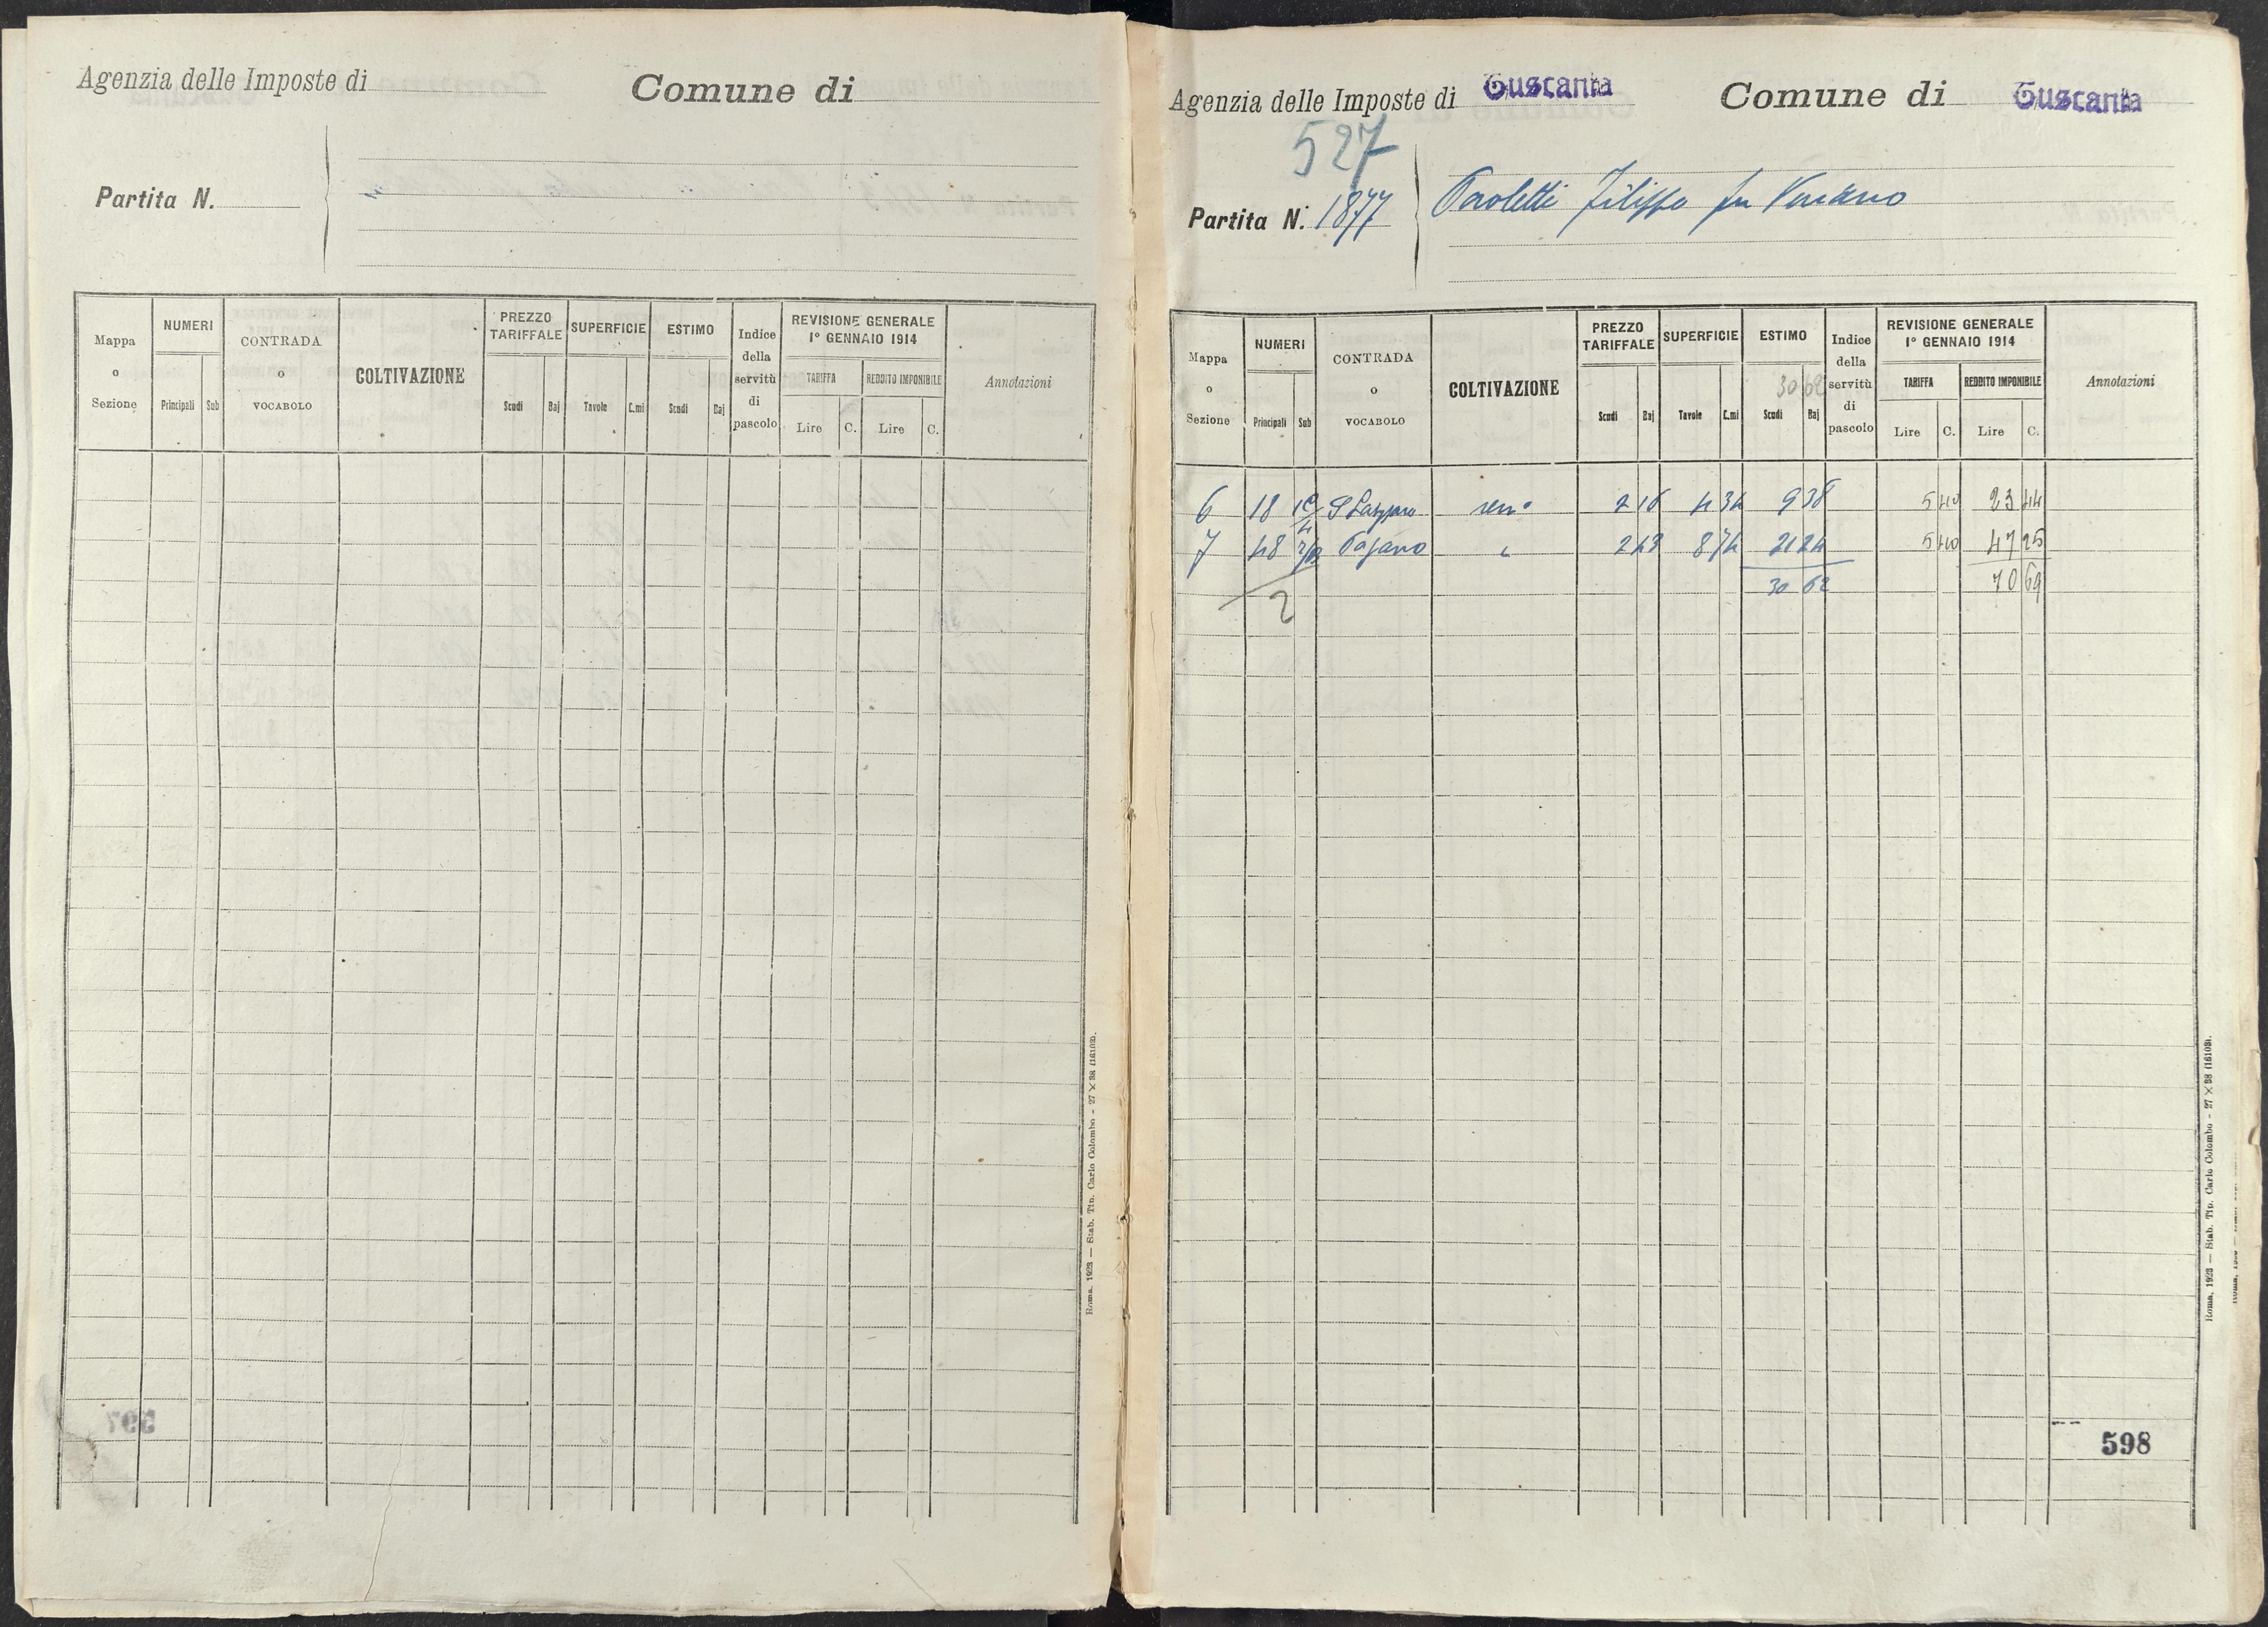 Agenzia delle Imposte di
Comune di
Partita N.
Mappa o Sezione
NUMERI
Principali Sub
CONTRADA o VOCABOLO
COLTIVAZIONE
PREZZO TARIFFALE
Scudi Baj
SUPERFICIE
Tavole C.mi
ESTIMO
Scudi Baj
Indice della servitù di pascolo
REVISIONE GENERALE 1º GENNAIO 1914
TARIFFA
Lire C.
REDDITO IMPONIBILE
Lire C.
Annotazioni
Roma, 1923 — Stab. Tip. Carlo Colombo - 27 × 38 (16103).
597
Agenzia delle Imposte di Tuscania
Comune di Tuscania
527
Partita N. 1877
Paoletti Filippo fu
Mappa o Sezione
NUMERI
Principali Sub
CONTRADA o VOCABOLO
COLTIVAZIONE
PREZZO TARIFFALE
Scudi Baj
SUPERFICIE
Tavole C.mi
ESTIMO
30 62
Scudi Baj
Indice della servitù di pascolo
REVISIONE GENERALE 1º GENNAIO 1914
TARIFFA
Lire C.
REDDITO IMPONIBILE
Lire C.
Annotazioni
6 18 S Lazzaro sem° 2 16 4 34 9 38 5 40 23 44
7 48 Pagano " 2 43 8 74 21 24 5 40 47 25
2 30 62 70 69
598
Roma, 1923 — Stab. Tip. Carlo Colombo - 27 × 38 (16103).